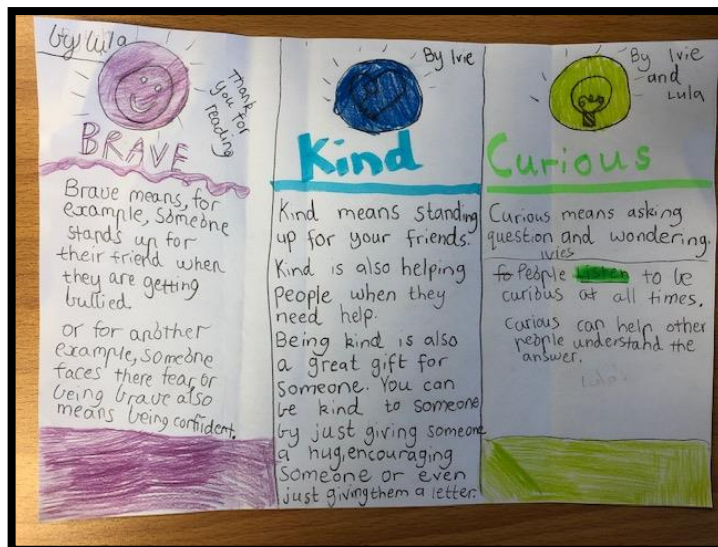 by lula
Thank
you for
reading
BRAVE
Brave means, for
example, someone
stands up for
their friend when
they are getting
bullied.
or for another
example, someone
faces there fear, or
being brave also
means being confident.
By Ivie
Kind
Kind means standing
up for your friends.
Kind is also helping
People when they
need help.
Being kind is also
a great gift for
someone. You can
be kind to someone
by just giving someone
a hug, encouraging
someone or even
just giving them a letter.
By Ivie
and
Lula
Curious
Curious means asking
question and wondering.
Ivies
to People Listen to be
curious at all times.
Curious can help other
people understand the
answer.
Lula